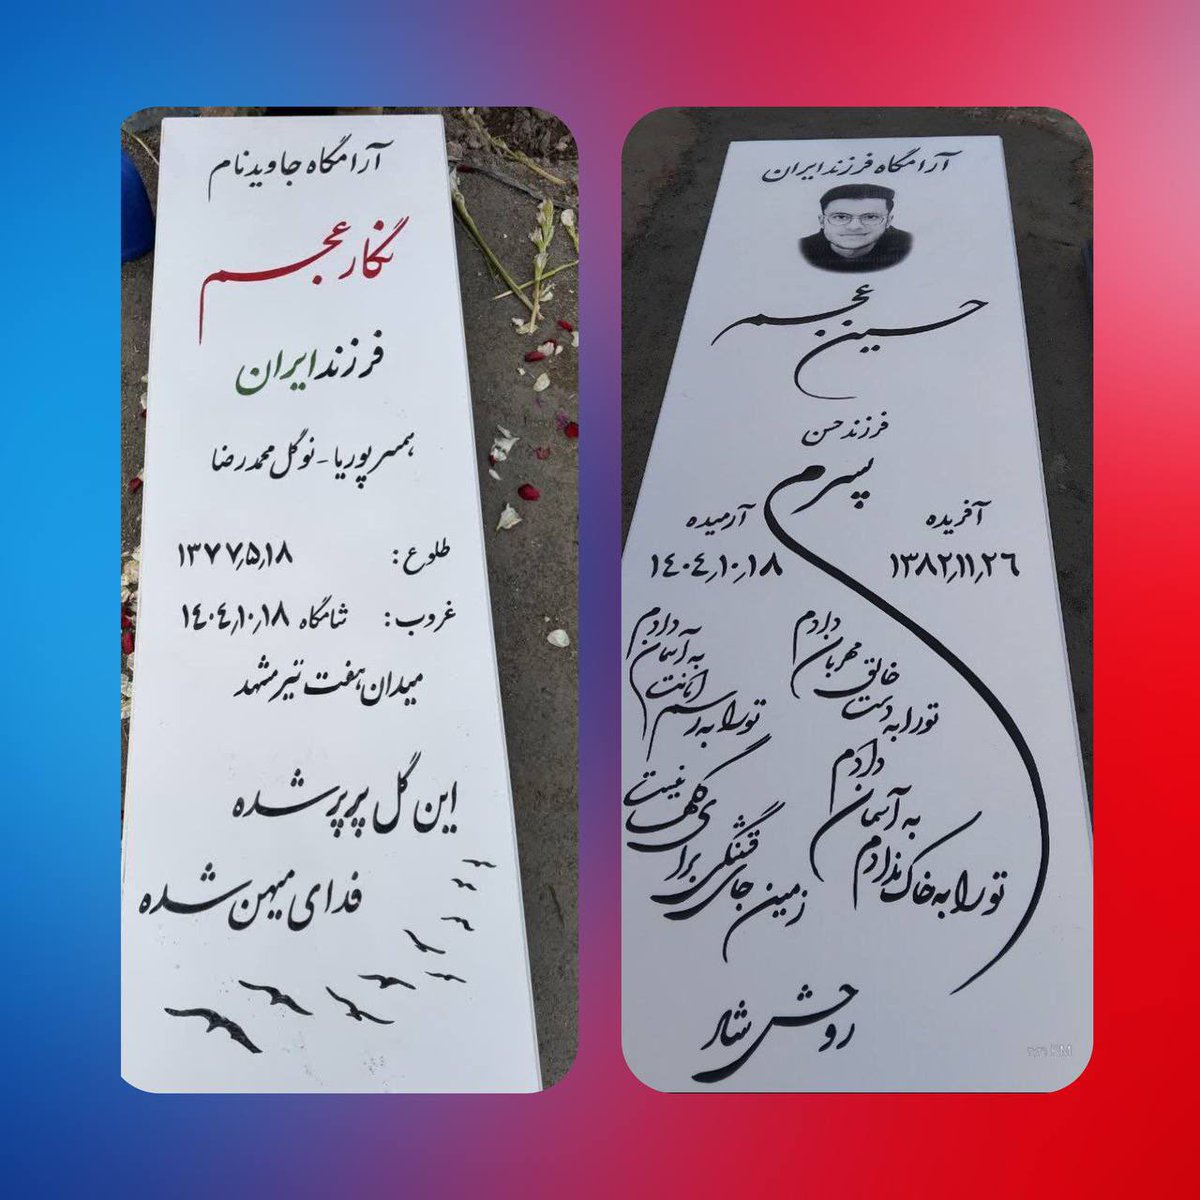 آرامگاه جاویدنام
نگار عجم
فرزند ایران
همسر پوریا - نوگل محمدرضا
طلوع : ۱۳۷۷٫۵٫۱۸
غروب : شامگاه ۱۴۰۴٫۱۰٫۱۸
میدان هفت تیر مشهد
این گل پرپر شده
فدای میهن شده
آرامگاه فرزند ایران
حسین عجم
فرزند حسن
پسرم
آفریده
۱۳۸۲٫۱۱٫۲۶
آرمیده
۱۴۰۴٫۱۰٫۱۸
تو را به دست خالق مهربان دادم
تو را به رسم امانت به آسمان دادم
تو را به خاک ندادم به آسمان دادم
زمین جای قشنگی برای گلها نیست
روحش شاد